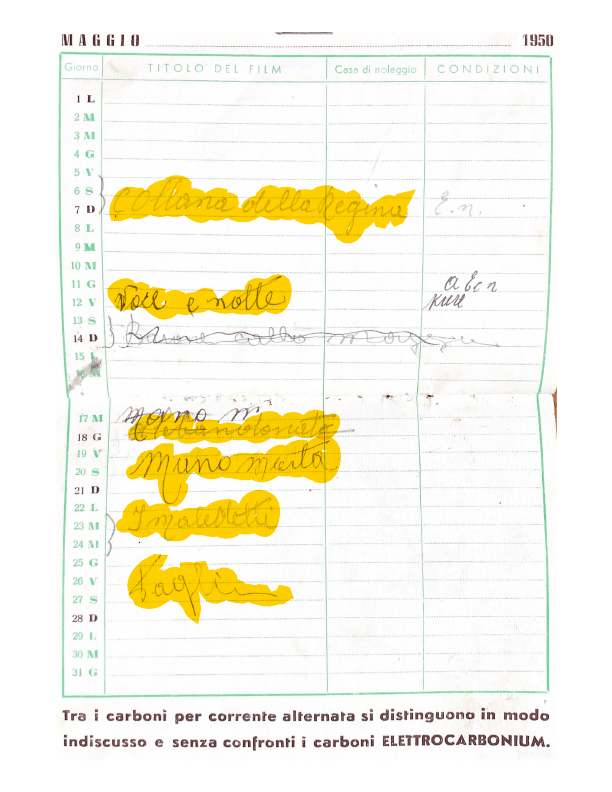 MAGGIO 1950
Giorno TITOLO DEL FILM Casa di noleggio CONDIZIONI
1 L
2 M
3 M
4 G
5 V
6 S
7 D Collana della Regina E.n.
8 L
9 M
10 M
11 G
12 V notte
13 S
14 D
15 L
16 M
17 M mano
18 G
19 V
20 S
21 D
22 L
23 M I maledetti
24 M
25 G
26 V
27 S
28 D
29 L
30 M
31 G
Tra i carboni per corrente alternata si distinguono in modo
indiscusso e senza confronti i carboni ELETTROCARBONIUM.